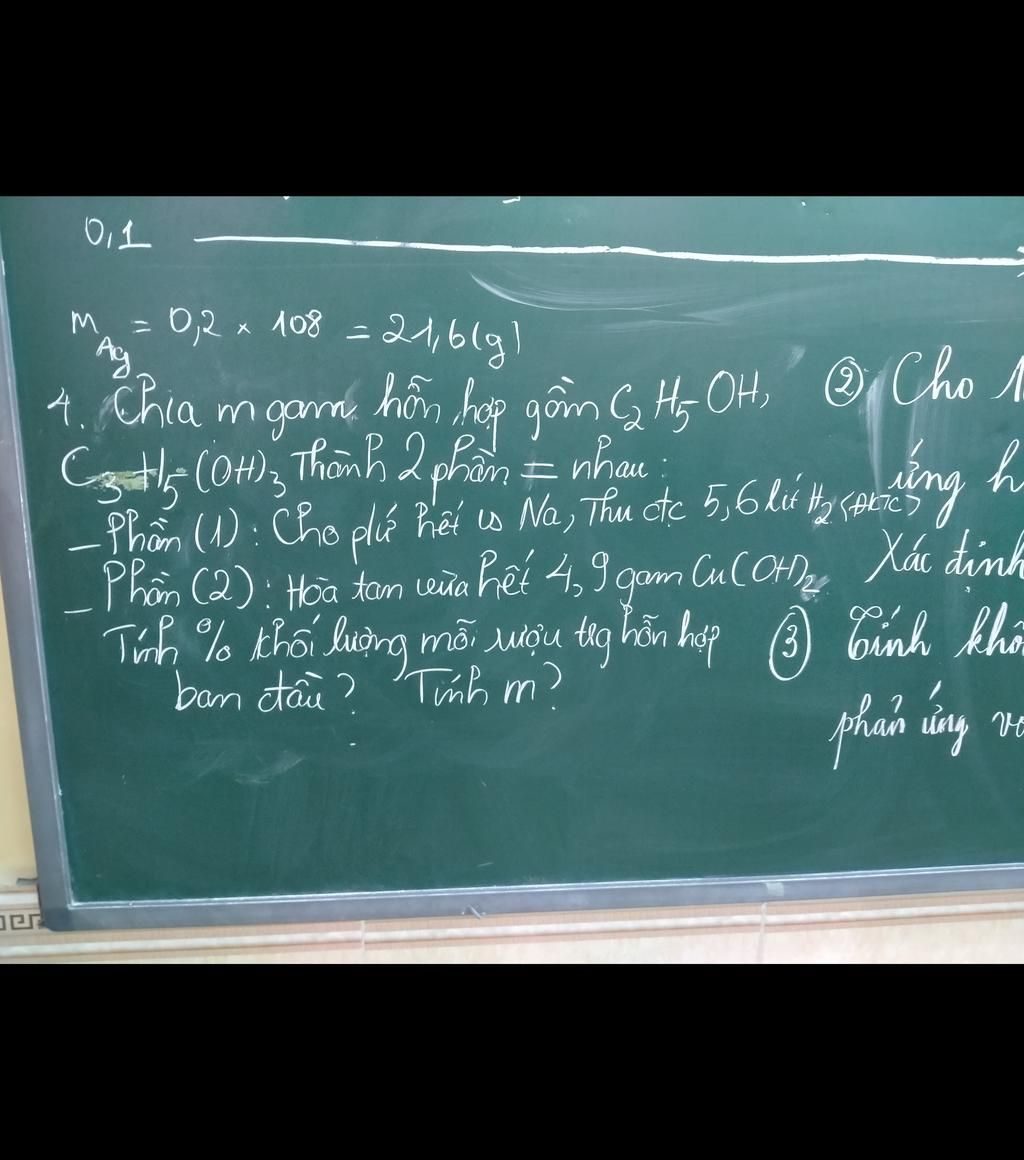 0,1
m Ag = 0,2 × 108 = 21,6(g)
4. Chia m gam hỗn hợp gồm C2H5OH,
C3H5(OH)3 Thành 2 phần = nhau:
- Phần (1): Cho pứ hết vs Na, Thu đc 5,6 lít H2 (ĐKTC)
- Phần (2): Hòa tan vừa hết 4,9 gam Cu(OH)2
Tính % khối lượng mỗi rượu trg hỗn hợp
ban đầu? Tính m?
② Cho
ứng h
Xác định
③ Tính khố
phản ứng vớ